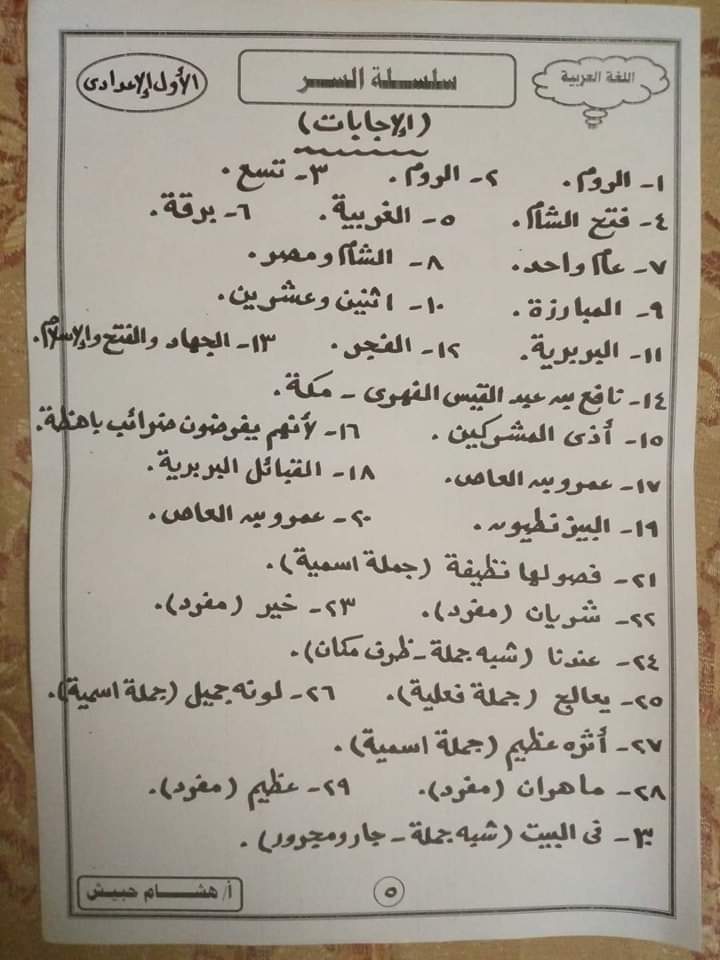 اللغة العربية
سلسلة السر
الأول الإعدادى
(الإجابات)
١- الروم. ٢- الروم. ٣- تسع.
٤- فتح الشام. ٥- الغربية. ٦- برقة.
٧- عام واحد. ٨- الشام ومصر.
٩- المبارزة. ١٠- اثنين وعشرين.
١١- البربرية. ١٢- الفجر. ١٣- الجهاد والفتح والإسلام.
١٤- نافع بن عبد القيس الفهوى - مكة.
١٥- أذى المشركين. ١٦- لأنهم يفرضون ضرائب باهظة.
١٧- عمرو بن العاص. ١٨- القبائل البربرية.
١٩- البيزنطيون. ٢٠- عمرو بن العاص.
٢١- فصولها نظيفة (جملة اسمية).
٢٢- شريان (مفرد). ٢٣- خير (مفرد).
٢٤- عندنا (شبه جملة - ظرف مكان).
٢٥- يعالج (جملة فعلية). ٢٦- لونه جميل (جملة اسمية).
٢٧- أثره عظيم (جملة اسمية).
٢٨- ماهران (مفرد). ٢٩- عظيم (مفرد).
٣٠- فى البيت (شبه جملة - جار ومجرور).
٥
أ/ هشام حبيش